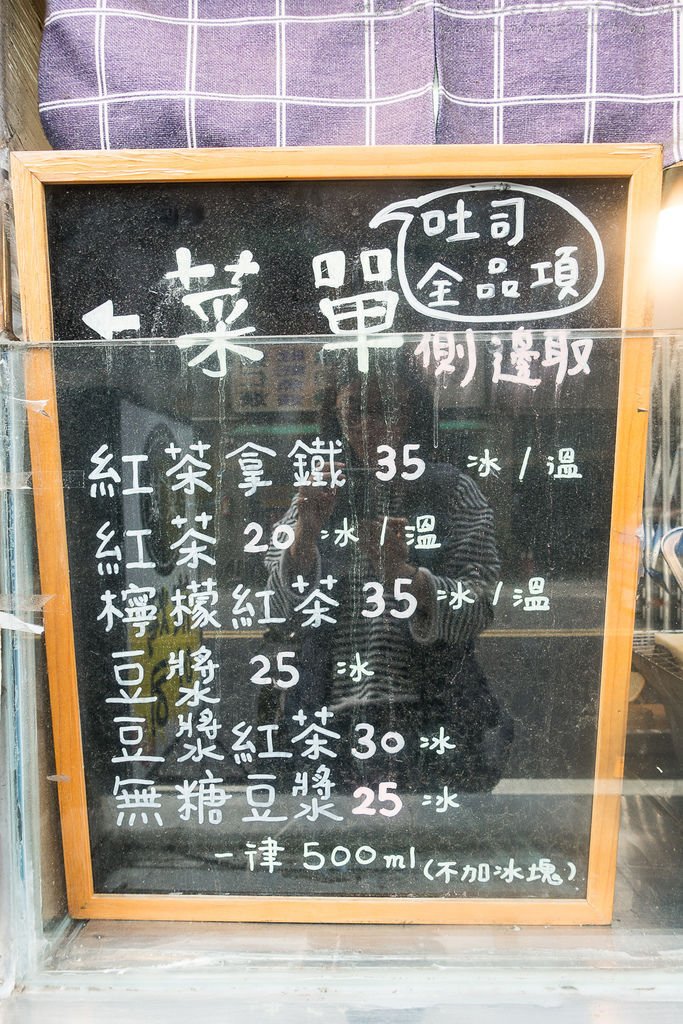 吐司
全品項
菜單
側邊取
紅茶拿鐵 35 冰/溫
紅茶 20 冰/溫
檸檬紅茶 35 冰/溫
豆漿 25 冰
豆漿紅茶 30 冰
無糖豆漿 25 冰
一律 500ml (不加冰塊)